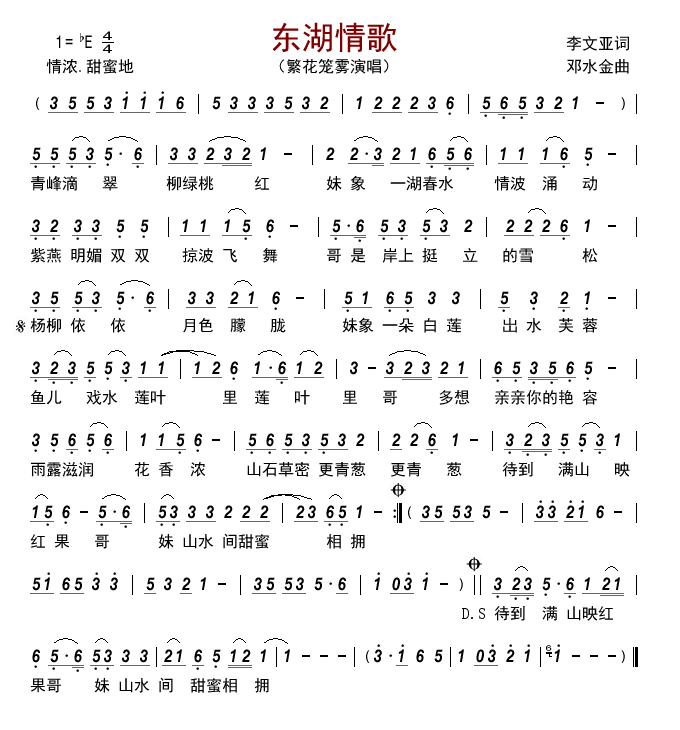 东湖情歌
1=♭E 4/4
李文亚词
情浓.甜蜜地
（繁花笼雾演唱）
邓水金曲
( 3 5 5 3 1 1 1 6 | 5 3 3 3 5 3 2 | 1 2 2 2 3 6 | 5 6 5 3 2 1 - ) |
5 5 5 3 5 · 6 | 3 3 2 3 2 1 - | 2 2 · 3 2 1 6 5 6 | 1 1 6 5 - |
青峰滴 翠 柳绿桃 红 妹 象 一湖春水 情波 涌 动
3 2 3 3 5 5 | 1 1 1 5 6 - | 5 · 6 5 3 5 3 2 | 2 2 2 6 1 - |
紫燕 明媚 双 双 掠波 飞 舞 哥 是 岸上 挺 立 的雪 松
3 5 5 3 5 · 6 | 3 3 2 1 6 - | 5 1 6 5 3 3 | 5 3 2 1 - |
𝄋 杨柳 依 依 月色 朦 胧 妹象 一朵 白 莲 出 水 芙 蓉
3 2 3 5 5 3 1 1 | 1 2 6 1 · 6 1 2 | 3 - 3 2 3 2 1 | 6 5 3 5 6 5 - |
鱼儿 戏水 莲叶 里 莲 叶 里 哥 多想 亲亲你的艳 容
3 5 6 5 6 | 1 1 5 6 - | 5 6 5 3 5 3 2 | 2 2 6 1 - | 3 2 3 5 5 3 1 |
雨露滋润 花 香 浓 山石草密 更青葱 更青 葱 待到 满山 映
1 5 6 - 5 · 6 | 5 3 3 3 2 2 2 | 2 3 6 5 1 - :‖ ( 3 5 5 3 5 - | 3 3 2 1 6 - |
红 果 哥 妹 山水 间甜蜜 相 拥
5 1 6 5 3 3 | 5 3 2 1 - | 3 5 5 3 5 · 6 | 1 0 3 1 - ) ‖ 3 2 3 5 · 6 1 2 1 |
D.S 待到 满 山映红
6 5 · 6 5 3 3 3 | 2 1 6 5 1 2 1 | 1 - - - | ( 3 · 1 6 5 | 1 0 3 2 1 | 1 - - - ) ‖
果哥 妹 山水 间 甜蜜相 拥